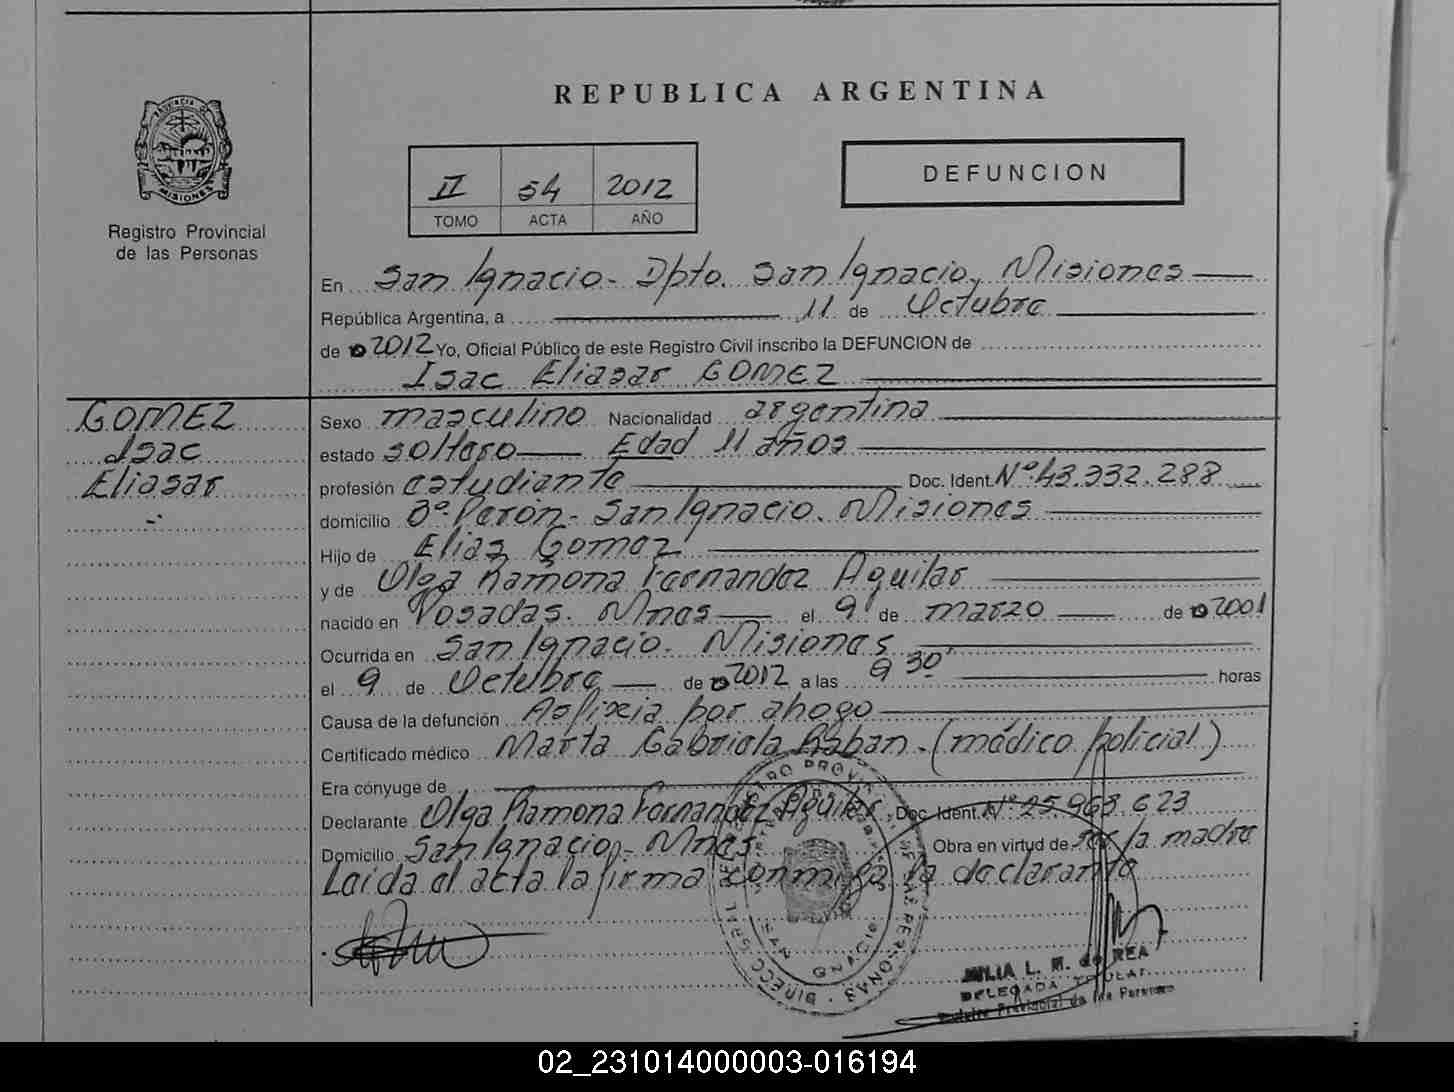 REPUBLICA ARGENTINA
DEFUNCION
II 54 2012
TOMO ACTA AÑO
MISIONES
Registro Provincial
de las Personas
En San Ignacio - Dpto. San Ignacio, Misiones
República Argentina, a 11 de Octubre
de 2012 Yo, Oficial Público de este Registro Civil inscribo la DEFUNCION de
Isac Eliasar GOMEZ
GOMEZ
Isac
Eliasar
Sexo masculino Nacionalidad argentina
estado soltero Edad 11 años
profesión estudiante Doc. Ident. Nº 43.332.288
domicilio Bº Perón - San Ignacio. Misiones
Hijo de Elias Gomez
y de Olga Ramona Fernandez Aguilar
nacido en Posadas. Mnes el 9 de marzo de 2001
Ocurrida en San Ignacio. Misiones
el 9 de Octubre de 2012 a las 9 30 horas
Causa de la defunción Asfixia por ahogo
Certificado médico Marta Gabriela Raban. (médico policial)
Era cónyuge de
Declarante Olga Ramona Fernandez Aguilar, Doc. Ident. Nº 25.968.623
Domicilio San Ignacio - Mnes Obra en virtud de ser la madre
Leida el acta la firma conmigo la declarante
JULIA L. M. de REA
DELEGADA TITULAR
Registro Provincial de las Personas
02_231014000003-016194